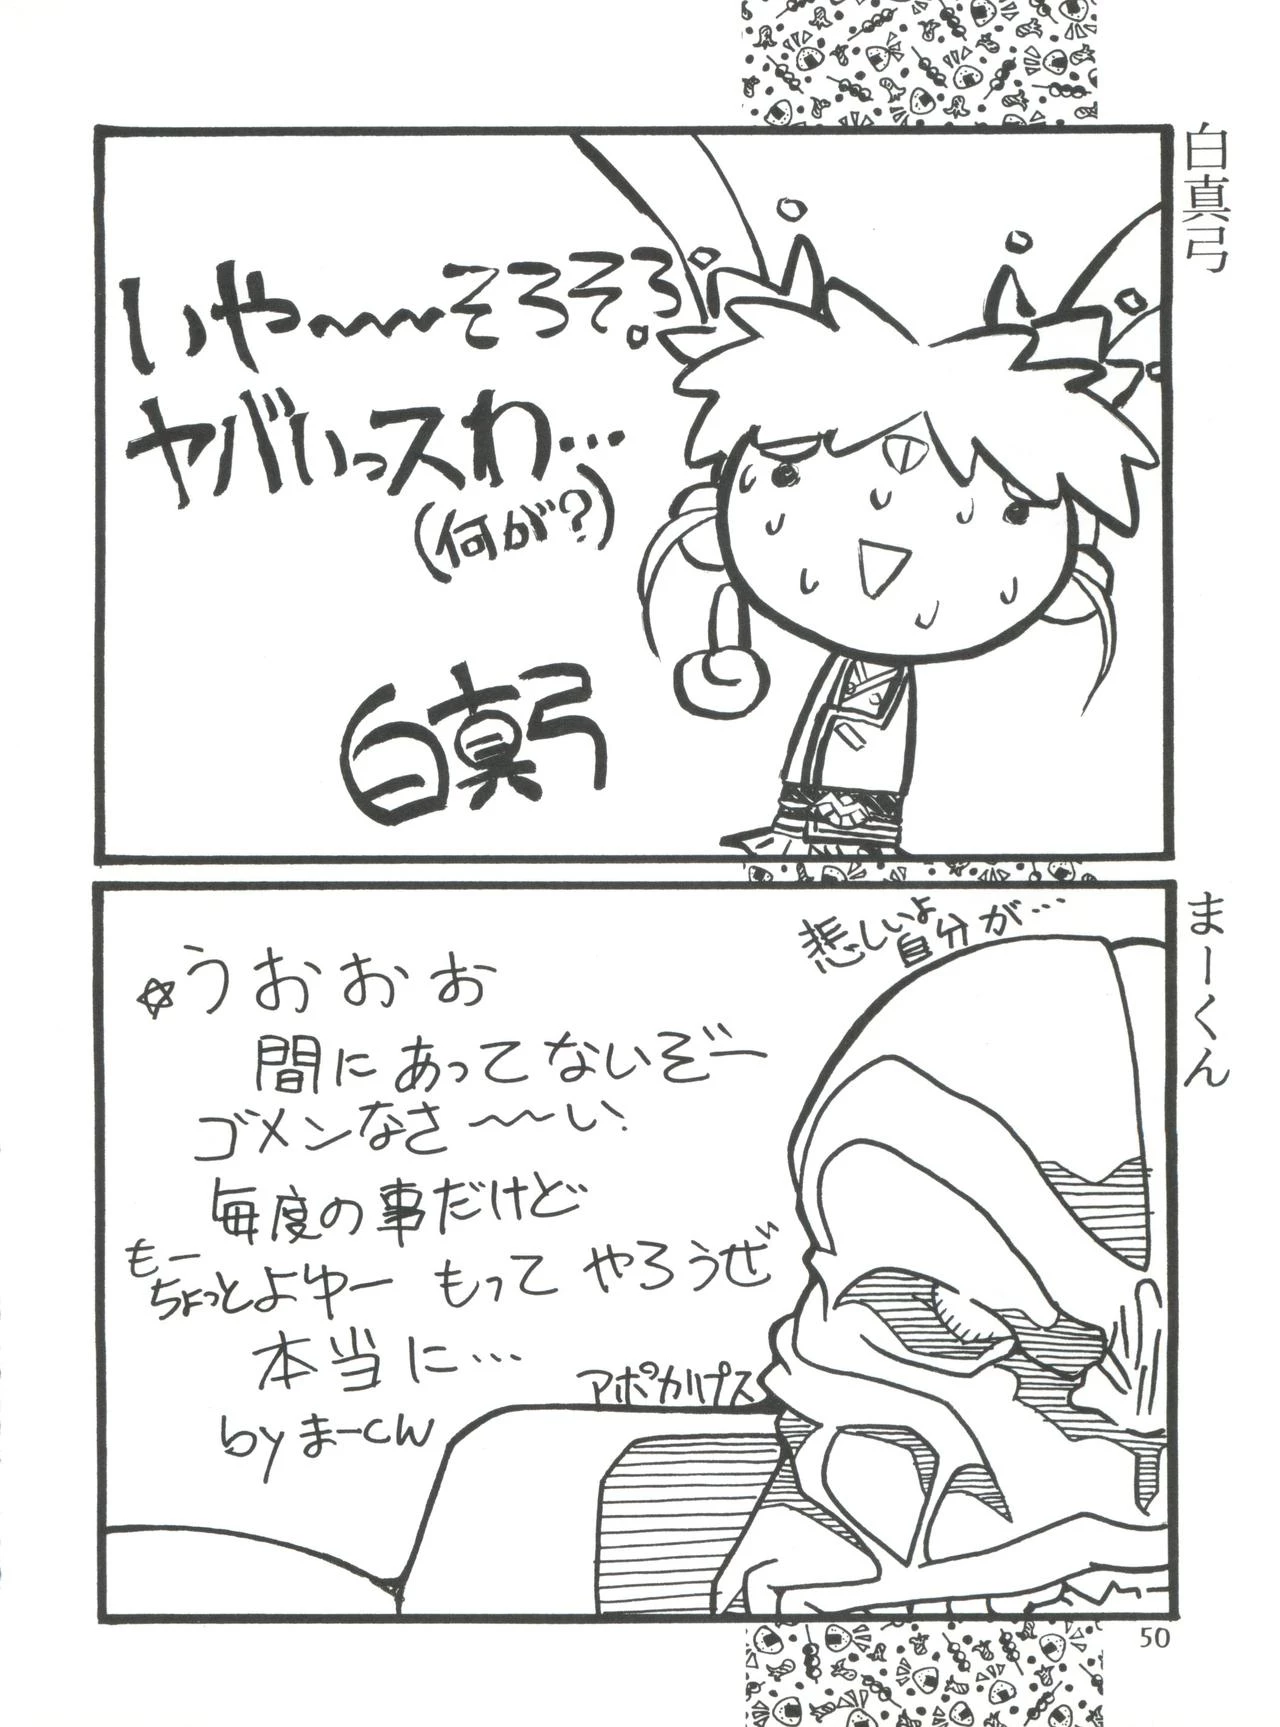 白真弓
いや〜〜そろそろ
ヤバいっスわ…
(何が?)
白真弓
まーくん
悲しいよ
自分が…
☆うおぉぉ
間にあってないぞー
ゴメンなさ〜〜い
毎度の事だけど
もー
ちょっとよゆー もって やろうぜ
本当に…
アポカリプス
by まーくん
50